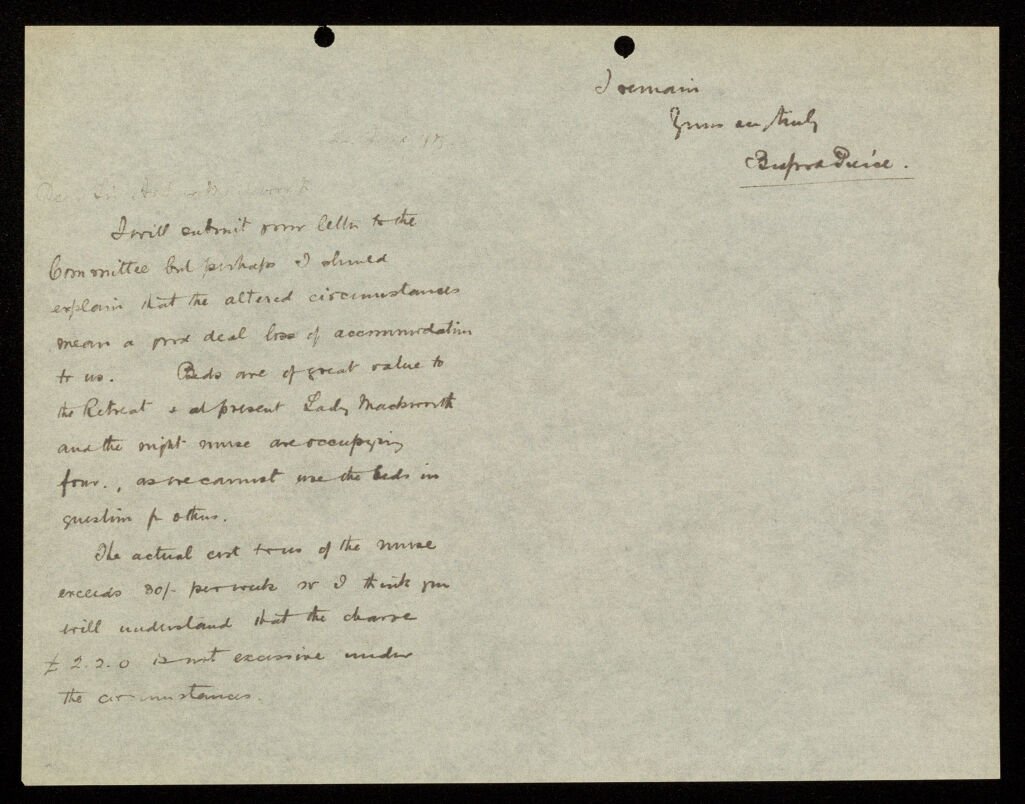 Dear Sir
I will submit your letter to the
Committee but perhaps I should
explain that the altered circumstances
mean a good deal loss of accommodation
to us. Beds are of great value to
the Retreat & at present Lady Mackworth
and the night nurse are occupying
four., as we cannot use the beds in
question for others.
The actual cost to us of the nurse
exceeds 30/- per week so I think you
will understand that the charge
£2.2.0 is not excessive under
the circumstances.
I remain
Yours truly
Pierce.